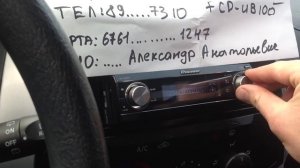 ТЕЛ:89.....7310 + CD-UB100
РТА: 6761..........1247
Ю: ..... Александр Анатольевич
Pioneer